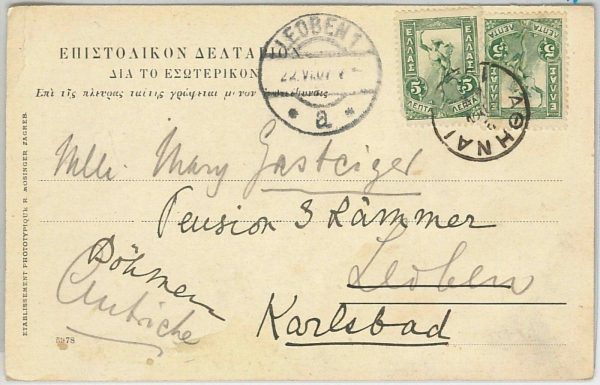 ΕΠΙΣΤΟΛΙΚΟΝ ΔΕΛΤΑΡΙΟΝ
ΔΙΑ ΤΟ ΕΣΩΤΕΡΙΚΟΝ
Ἐπὶ τῆς πλευρᾶς ταύτης γράφεται μόνον ἡ διεύθυνσις
LEOBEN 1
22.VI.07
* a *
ΕΛΛΑΣ
5 5
ΛΕΠΤΑ ΛΕΠΤΑ
ΕΛΛΑΣ
5 5
ΛΕΠΤΑ
ΑΘΗΝΑΙ
1
Mlle. Mary Gasteiger
Pension 3 Lämmer
Leoben
Karlsbad
Böhmen
Autriche
ETABLISSEMENT PHOTOTYPIQUE R. MOSINGER ZAGREB.
5978